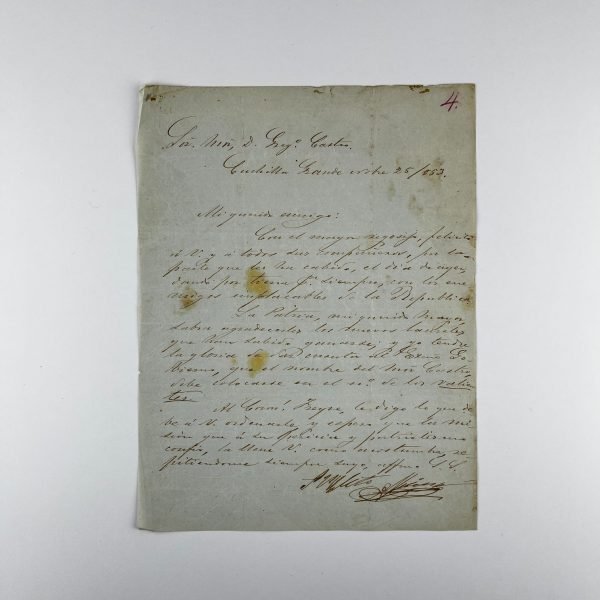 4.
Sôr. Môr. D. Gregº. Castro.
Cuchilla Grande 25/853.
Mi querido amigo:
Con el mayor regosijo, felicito
á V. y á todos sus compañeros, por la
parte que les ha cabido, el dia de ayer,
dando por tierra pª. siempre, con los ene
migos implacables de la Republica.
La Patria, mi querido Mayor
sabra agradecerles los nuevos laureles
que han sabido ganarse; y yo tendré
la gloria de dar cuenta al Exmo Go-
bierno, que el nombre del Môr Castro,
debe colocarse en el de los valien
tes.
Al Coronl. Reyes, le digo lo que de
be á V. ordenarle, y espero que la mi
sion que á su pericia y patriotismo
confio, la llene V. como acostumbra, re
pitiendome siempre suyo, affmo